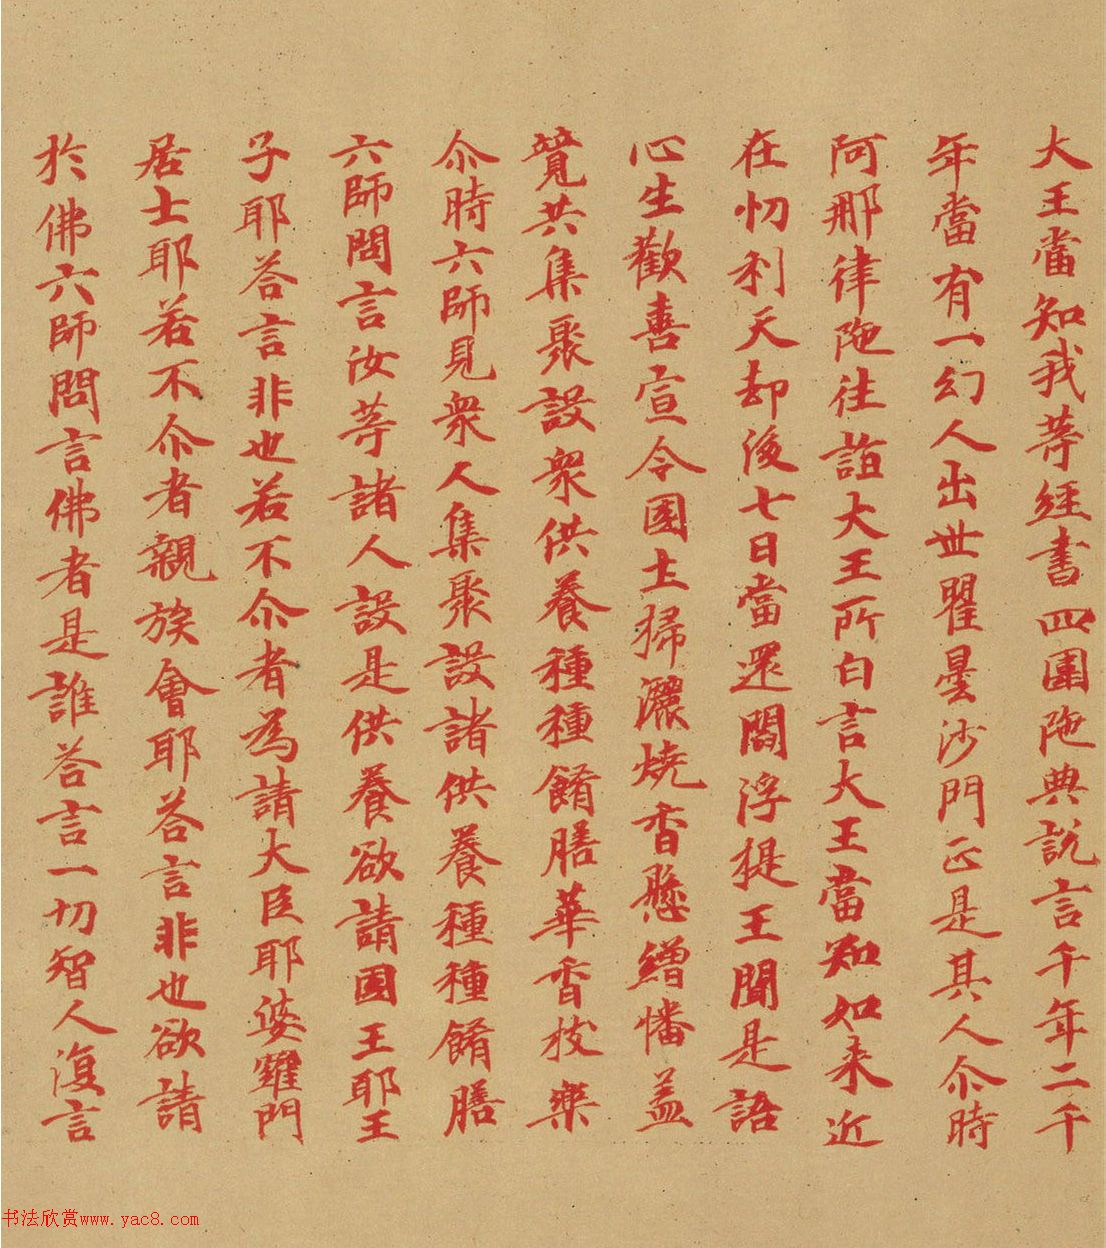 大王當知我等經書四圍陁典說言千年二千
年當有一幻人出世瞿曇沙門正是其人尒時
阿那律陁往詣大王所白言大王當知如来近
在忉利天却後七日當還閻浮提王聞是語
心生歡喜宣令國土掃灑燒香懸繒幡蓋
競共集聚設衆供養種種餚膳華香技樂
尒時六師見衆人集聚設諸供養種種餚膳
六師問言汝等諸人設是供養欲請國王耶王
子耶荅言非也若不尒者為請大臣耶婆羅門
居士耶若不尒者親族會耶荅言非也欲請
於佛六師問言佛者是誰荅言一切智人復言
书法欣赏www.yac8.com